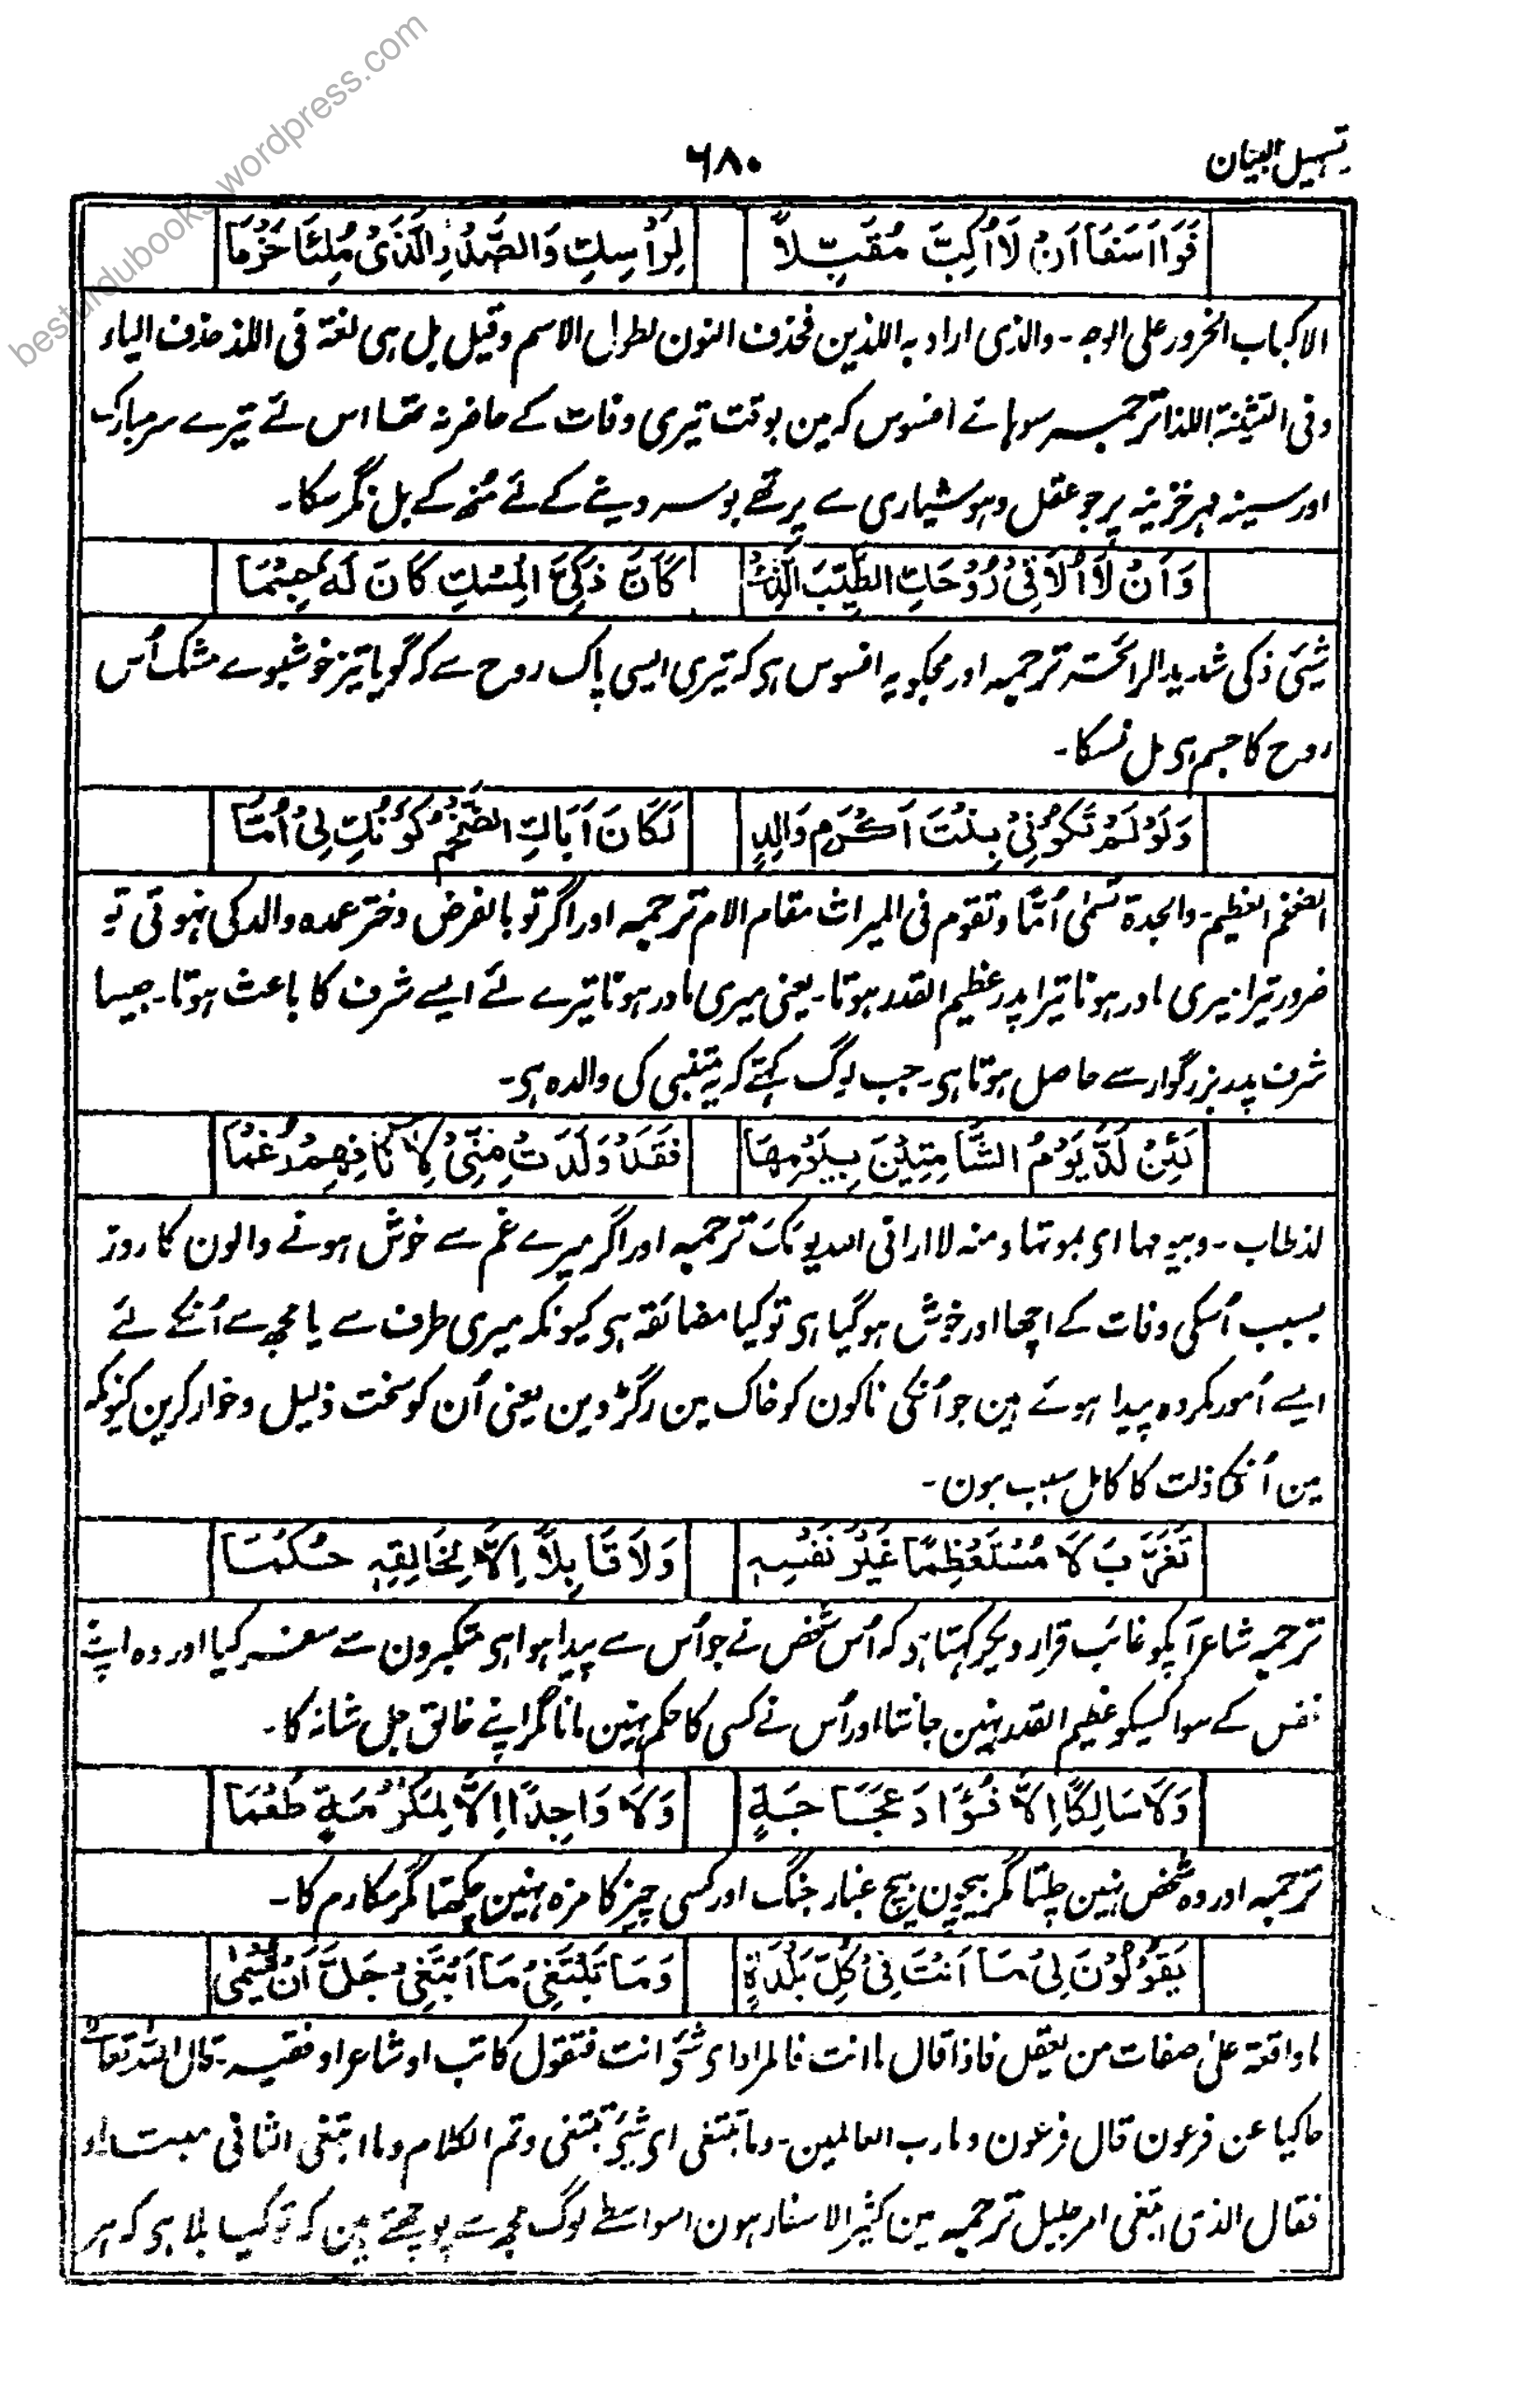 تسہیل البیان
٦٨٠
فَوَا اَسَفَا اَنْ لَا اُكِبَّ مُقَبِّلًا لِرَأْسِكِ وَالصَّدْرِ الَّذَيْ مُلِئَا حَزْمَا
الاکباب الخرور علی الوجہ ۔ والذی اراد بہ اللذین فحذف النون لطول الاسم وقیل بل ہی لغۃ فی اللذ حذف الیاء
وفی التثنیۃ اللذا ترجمہ سو ہائے افسوس کہ مین بوقت تیری وفات کے حاضر نہ تھا اس لئے تیرے سر مبارک
اور سینہ مہر خزینہ پر جو عقل و ہوشیاری سے پر تھے بوسہ دینے کے لئے منھ کے بل نگر سکا۔
وَاَنْ لَا اُلَاقِيْ رُوْحَكِ الطَّيِّبَ الَّذِيْ كَاَنَّ ذَكِيَّ الْمِسْكِ كَانَ لَهُ جِسْمَا
شیئ ذکی شدید الرائحۃ ترجمہ اور مجکو یہ افسوس ہی کہ تیری ایسی پاک روح سے کہ گویا تیز خوشبوے مشک اُس
روح کا جسم ہی مل نسکا۔
وَلَوْ لَمْ تَكُوْنِيْ بِنْتَ اَكْرَمِ وَالِدٍ لَكَانَ اَبَاكِ الضَّخْمَ كَوْنُكِ لِيْ اُمَّا
الضخم العظیم۔ والجدۃ تسمیٰ اُمًّا وتقوم فی المیراث مقام الام ترجمہ اور اگر تو بالفرض دختر عمدہ والد کی نہوتی تو
ضرور تیرا میری مادر ہونا تیرا پدر عظیم القدر ہوتا۔ یعنی میری مادر ہونا تیرے لئے ایسے شرف کا باعث ہوتا۔ جیسا
شرف پدر بزرگوار سے حاصل ہوتا ہی۔ جب لوگ کہتے کہ یہ متنبی کی والدہ ہی۔
لَئِنْ لَذَّ يَوْمُ الشَّامِتِيْنَ بِيَوْمِهَا فَقَدْ وَلَدَتْ مِنِّيْ لِاٰنَافِهِمْ رَغْمَا
لذ طاب۔ وبیومہا ای بموتہا ومنہ لا ارانی اللہ یومک ترجمہ اور اگر میرے غم سے خوش ہونے والون کا روز
بسبب اُسکی وفات کے اچھا اور خوش ہوگیا ہی تو کیا مضائقہ ہی کیونکہ میری طرف سے یا مجھ سے اُنکے لئے
ایسے اُمور مکروہ پیدا ہوئے ہین جو اُنکی ناکون کو خاک مین رگڑ دین یعنی اُن کو سخت ذلیل و خوار کرین کیونکہ
مین اُنکی ذلت کا کامل سبب ہون۔
تَغَرَّبَ لَا مُسْتَعْظِمًا غَيْرَ نَفْسِهٖ وَلَا قَابِلًا اِلَّا لِخَالِقِهٖ حُكْمَا
ترجمہ شاعر آپکو غائب قرار دیکر کہتا ہے کہ اُس شخص نے جو اُس سے پیدا ہوا ہی متکبرون سے سفر کیا اور وہ اپنے
نفس کے سوا کسیکو عظیم القدر نہین جانتا اور اُس نے کسی کا حکم نہین مانا مگر اپنے خالق جل شانہ کا۔
وَلَا سَالِكًا اِلَّا فُؤَادَ عَجَاجَةٍ وَلَا وَاجِدًا اِلَّا لِمَكْرُمَةٍ طَعْمَا
ترجمہ اور وہ شخص نہین چلتا مگر بیچون بیچ غبار جنگ اور کسی چیز کا مزہ نہین چکھتا مگر مکارم کا۔
يَقُوْلُوْنَ لِيْ مَا اَنْتَ فِيْ كُلِّ بَلْدَةٍ وَمَا تَبْتَغِيْ مَا اَبْتَغِيْ جَلَّ اَنْ يُّسْمٰى
ما واقعۃ علیٰ صفات من یعقل فاذا قال ما انت فالمراد ای شئ انت فتقول کاتب او شاعر او فقیہ۔ قال اللہ تعالےٰ
حاکیا عن فرعون قال فرعون وما رب العالمین۔ وما تبتغی ای شئ تبتغی وتم الکلام وما ابتغی الثانی مبتداء
فقال الذی ابتغی امر جلیل ترجمہ مین کثیر الاسفار ہون اسواسطے لوگ مجھ سے پوچھتے ہین کہ تو کیا بلا ہی کہ ہر
besturdubooks.wordpress.com